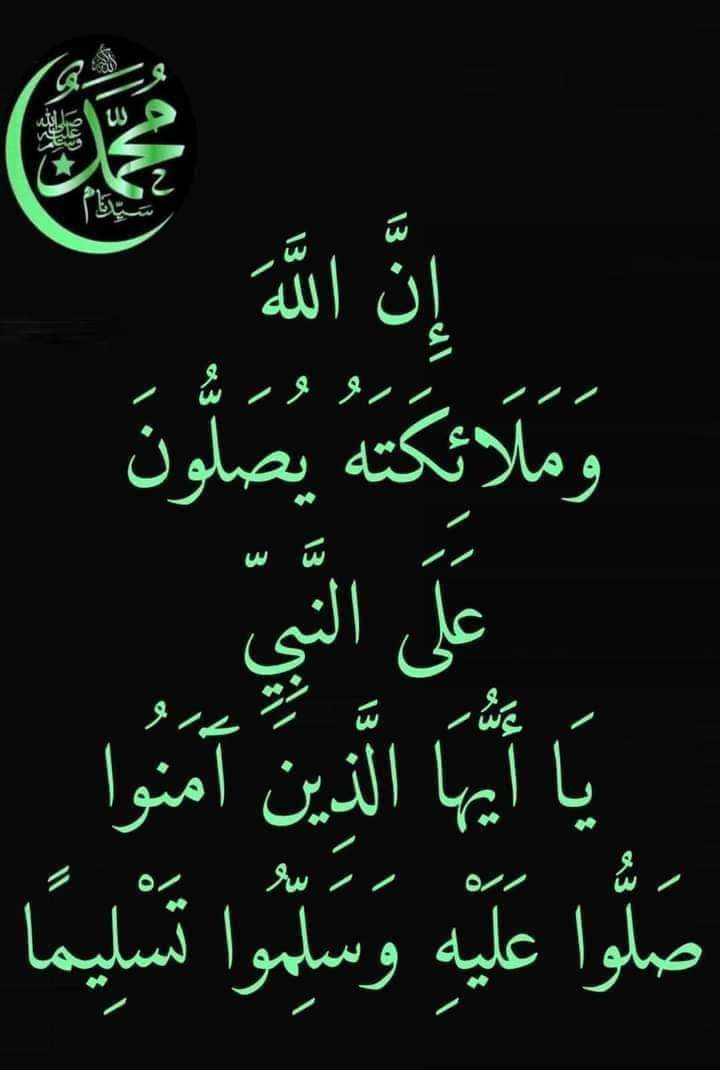 الله
محمد
صلى الله عليه وسلم
سيدنا
إِنَّ اللَّهَ
وَمَلَائِكَتَهُ يُصَلُّونَ
عَلَى النَّبِيِّ
يَا أَيُّهَا الَّذِينَ آمَنُوا
صَلُّوا عَلَيْهِ وَسَلِّمُوا تَسْلِيمًا